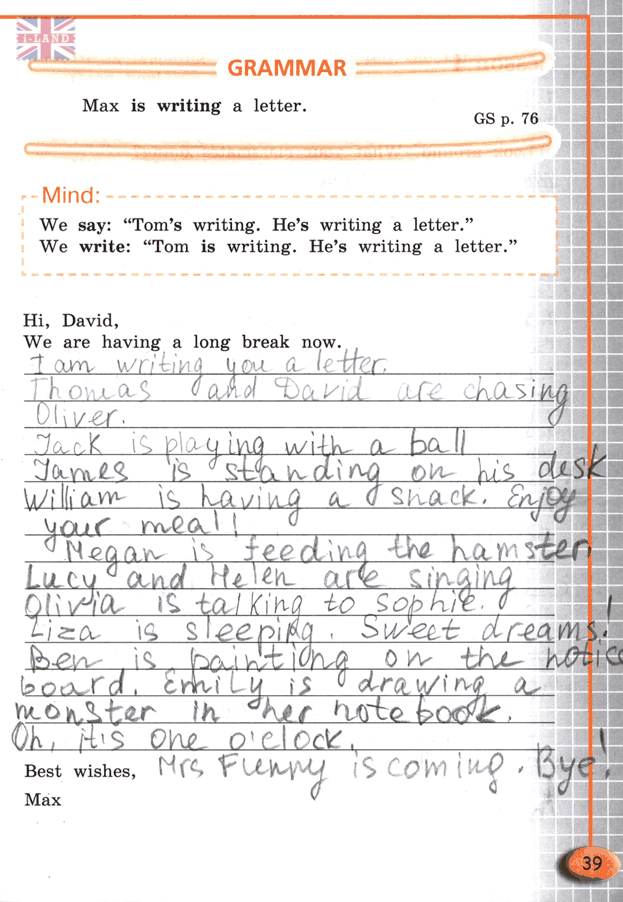 i-LAND
GRAMMAR
Max is writing a letter.
GS p. 76
Mind:
We say: “Tom's writing. He's writing a letter.”
We write: “Tom is writing. He's writing a letter.”
Hi, David,
We are having a long break now.
I am writing you a letter.
Thomas and David are chasing
Oliver.
Jack is playing with a ball
James is standing on his desk
William is having a snack. Enjoy
your meal!
Megan is feeding the hamster.
Lucy and Helen are singing
Olivia is talking to Sophie.
Liza is sleeping. Sweet dreams!
Ben is paintiong on the notice
board. Emily is drawing a
monster in her notebook.
Oh, it's one o'clock.
Best wishes, Mrs Flenny is coming. Bye!
Max
39